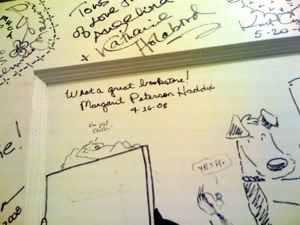 of Love
Angelina
+ Katharine
Holabird
5-20-
What a great bookstore!
Margaret Peterson Haddix
4-26-08
I'm just
YESH.
2008